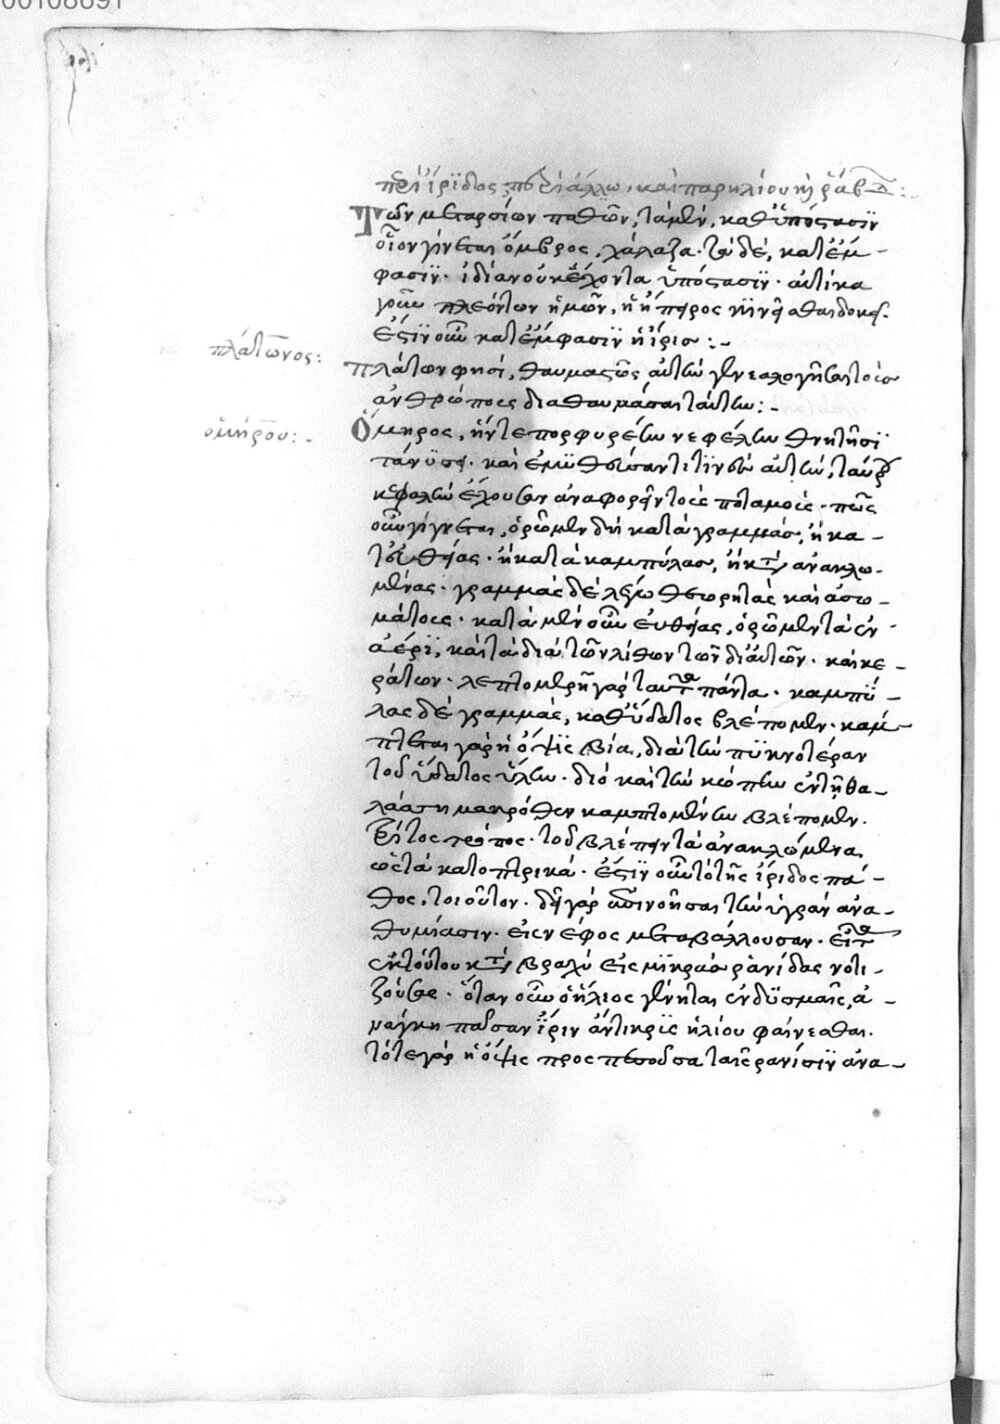 00108691
περὶ ἴρϊδος περὶ ἅλλω, καὶ παρηλίου κὴ ῥάβδ :-
Τῶν μεταρσίων παθῶν, τὰ μὲν, καθ' ὑπόστασϊν
οἷον γίνεται ὄμβρος, χάλαζα· τὰ δὲ, κατ' ἔμ-
φασϊν· ἰδίαν οὐκ ἔχοντα ὑπόστασϊν· αὐτίκα
γοῦν πλεόντων ἡμῶν, ἡ ἤπειρος κϊνεῖσθαι δοκεῖ·
ἔστϊν οὖν κατ' ἔμφασϊν ἡ ἶρις :-
πλάτωνος:
Πλάτων φησί, θαυμαστῶς αὐτὴν γενεαλογῆσαι τοὺς
ἀνθρώπους διὰ θαυμάσαι ταύτην :-
ὁμήρου:-
Ὅμηρος, ἠύτε πορφυρέην νεφέλην θνητοῖσϊ
τανύσσῃ· καὶ ἐμϋθεύσαντό τϊνες αὐτὴν, ταύρου
κεφαλὴν ἔχουσαν ἀναφορεῖν τοὺς ποταμούς· πῶς
οὖν γίγνεται, ὁρῶμεν δὴ κατὰ γραμμάς, ἢ κα-
τ' εὐθείας· ἢ κατὰ καμπύλας, ἢ κτ' ἀνακλω-
μένας· γραμμὰς δὲ λέγω θεωρητὰς καὶ ἀσω-
μάτους· κατὰ μὲν οὖν εὐθείας, ὁρῶμεν τὰ ἐν
ἀέρϊ, καὶ τὰ διὰ τῶν λίθων τῶν διαυτῶν· καὶ κε-
ράτων· λεπτομερῆ γὰρ ταῦτα πάντα· καμπϋ-
λας δὲ γραμμὰς, καθ' ὕδατος βλέπομεν· κάμ-
πτεται γὰρ ἡ ὄψϊς βία, διὰ τὴν πϋκνοτέραν
τοῦ ὕδατος ὕλην· διὸ καὶ τὴν κώπην ἐν τῇ θα-
λάσσῃ μακρόθεν καμπτομένην βλέπομεν.
τρίτος τρόπος· τοῦ βλέπειν τὰ ἀνακλώμενα,
ὡς τὰ κατοπτρικά· ἔστϊν οὖν τὸ τῆς ἴριδος πά-
θος, τοιοῦτον· δεῖ γὰρ ἐπινοῆσαι τὴν ὑγρὰν ἀνα-
θυμίασιν· εἰς νέφος μεταβάλλουσαν· εἶτα
ἐκ τούτου κτ' βραχὺ εἰς μϊκρὰς ῥανίδας νοτι-
ζούσας· ὅταν οὖν ὁ ἥλιος γένηται ἐν δϋσμαῖς, ἀ-
νάγκη πᾶσαν ἶριν ἄντικρϋς ἡλίου φαίνεσθαι.
τότε γὰρ ἡ ὄψις προσπεσοῦσα ταῖς ῥανίσϊν ἀνα-